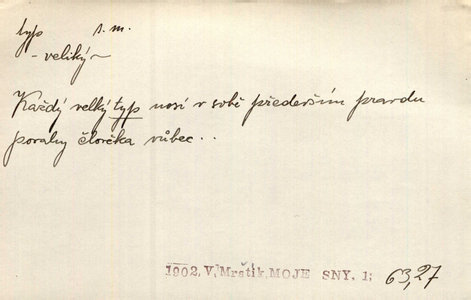 typ s. m.
- veliký ~
Každý velký typ nosí v sobě především pravdu
povahy člověka vůbec ..
1902, V. Mrštík, MOJE SNY, 1; 63,27